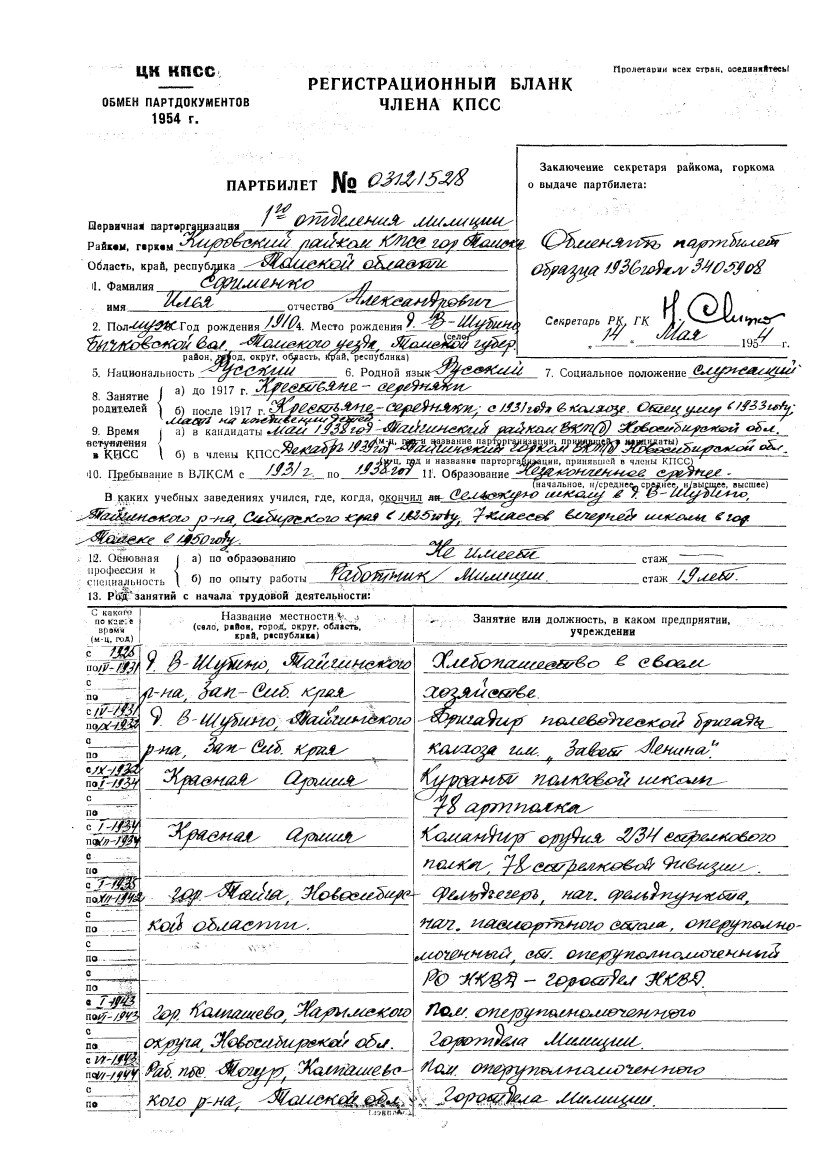 ЦК КПСС
ОБМЕН ПАРТДОКУМЕНТОВ
1954 г.
Пролетарии всех стран, соединяйтесь!
РЕГИСТРАЦИОННЫЙ БЛАНК
ЧЛЕНА КПСС
ПАРТБИЛЕТ № 03121528
Заключение секретаря райкома, горкома
о выдаче партбилета:
Обменять партбилет
образца 1936 года № 3405908
Секретарь РК, ГК
„ 14 „ Мая 1954
Первичная парторганизация 1го отделения милиции
Райком, горком Кировский райком КПСС гор Томска
Область, край, республика Томской области
1. Фамилия Ефименко
имя Илья отчество Александрович
2. Пол муж Год рождения 1910 4. Место рождения д. В-Шубино
(село)
вол. Томского уезда, Томской губер
район, город, округ, область, край, республика)
5. Национальность Русский 6. Родной язык Русский 7. Социальное положение служащий
8. Занятие родителей
а) до 1917 г. Крестьяне-середняки
б) после 1917 г. Крестьяне-середняки, с 1931 года в колхозе. Отец умер в 1933 году,
мать на иждивении детей.
9. Время вступления в КПСС
а) в кандидаты май 1938 год Тайгинский райком ВКП(б) Новосибирской обл.
(м-ц, год и название парторганизации, принявшей в кандидаты)
б) в члены КПСС Декабрь 1939 год Тайгинский горком ВКП(б) Новосибирской обл.
(м-ц, год и название парторганизации, принявшей в члены КПСС)
10. Пребывание в ВЛКСМ с 1931 г. по 1938 год 11. Образование Незаконченное среднее.
(начальное, н/среднее, среднее, н/высшее, высшее)
В каких учебных заведениях учился, где, когда, окончил ли Сельскую школу в д. В-Шубино,
Тайгинского р-на, Сибирского края в 1925 году, 7 классов вечерней школы в гор.
Томске в 1950 году.
12. Основная профессия и специальность
а) по образованию Не имеет стаж —
б) по опыту работы Работник Милиции. стаж 19 лет.
13. Род занятий с начала трудовой деятельности:
С какого по какое время (м-ц, год)
Название местности
(село, район, город, округ, область,
край, республика)
Занятие или должность, в каком предприятии,
учреждении
с 1925 д. В-Шубино, Тайгинского Хлебопашество в своем
по IV-1931 р-на, Зап-Сиб. края хозяйстве.
с IV-1931 д. В-Шубино, Тайгинского Бригадир полеводческой бригады
по IX-1932 р-на, Зап-Сиб. края колхоза им. „Завет Ленина".
с IX-1932 Красная Армия Курсант полковой школы
по I-1934 78 артполка
с I-1934 Красная Армия Командир орудия 234 стрелкового
по XII-1934 полка, 78 стрелковой дивизии.
с I-1935 гор. Тайга, Новосибирс- Фельдъегерь, нач. фельдпункта,
по XII-1942 кой области. нач. паспортного стола, оперуполно-
моченный, ст. оперуполномоченный
РО НКВД – горотдел НКВД.
с I-1943 гор. Колпашево, Нарымского Пом. оперуполномоченного
по VI-1943 округа, Новосибирской обл. Горотдела Милиции.
с VI-1943 Раб. пос. Тогур, Колпашевс- Пом. оперуполномоченного
по VI-1944 кого р-на, Томской обл. Горотдела Милиции.